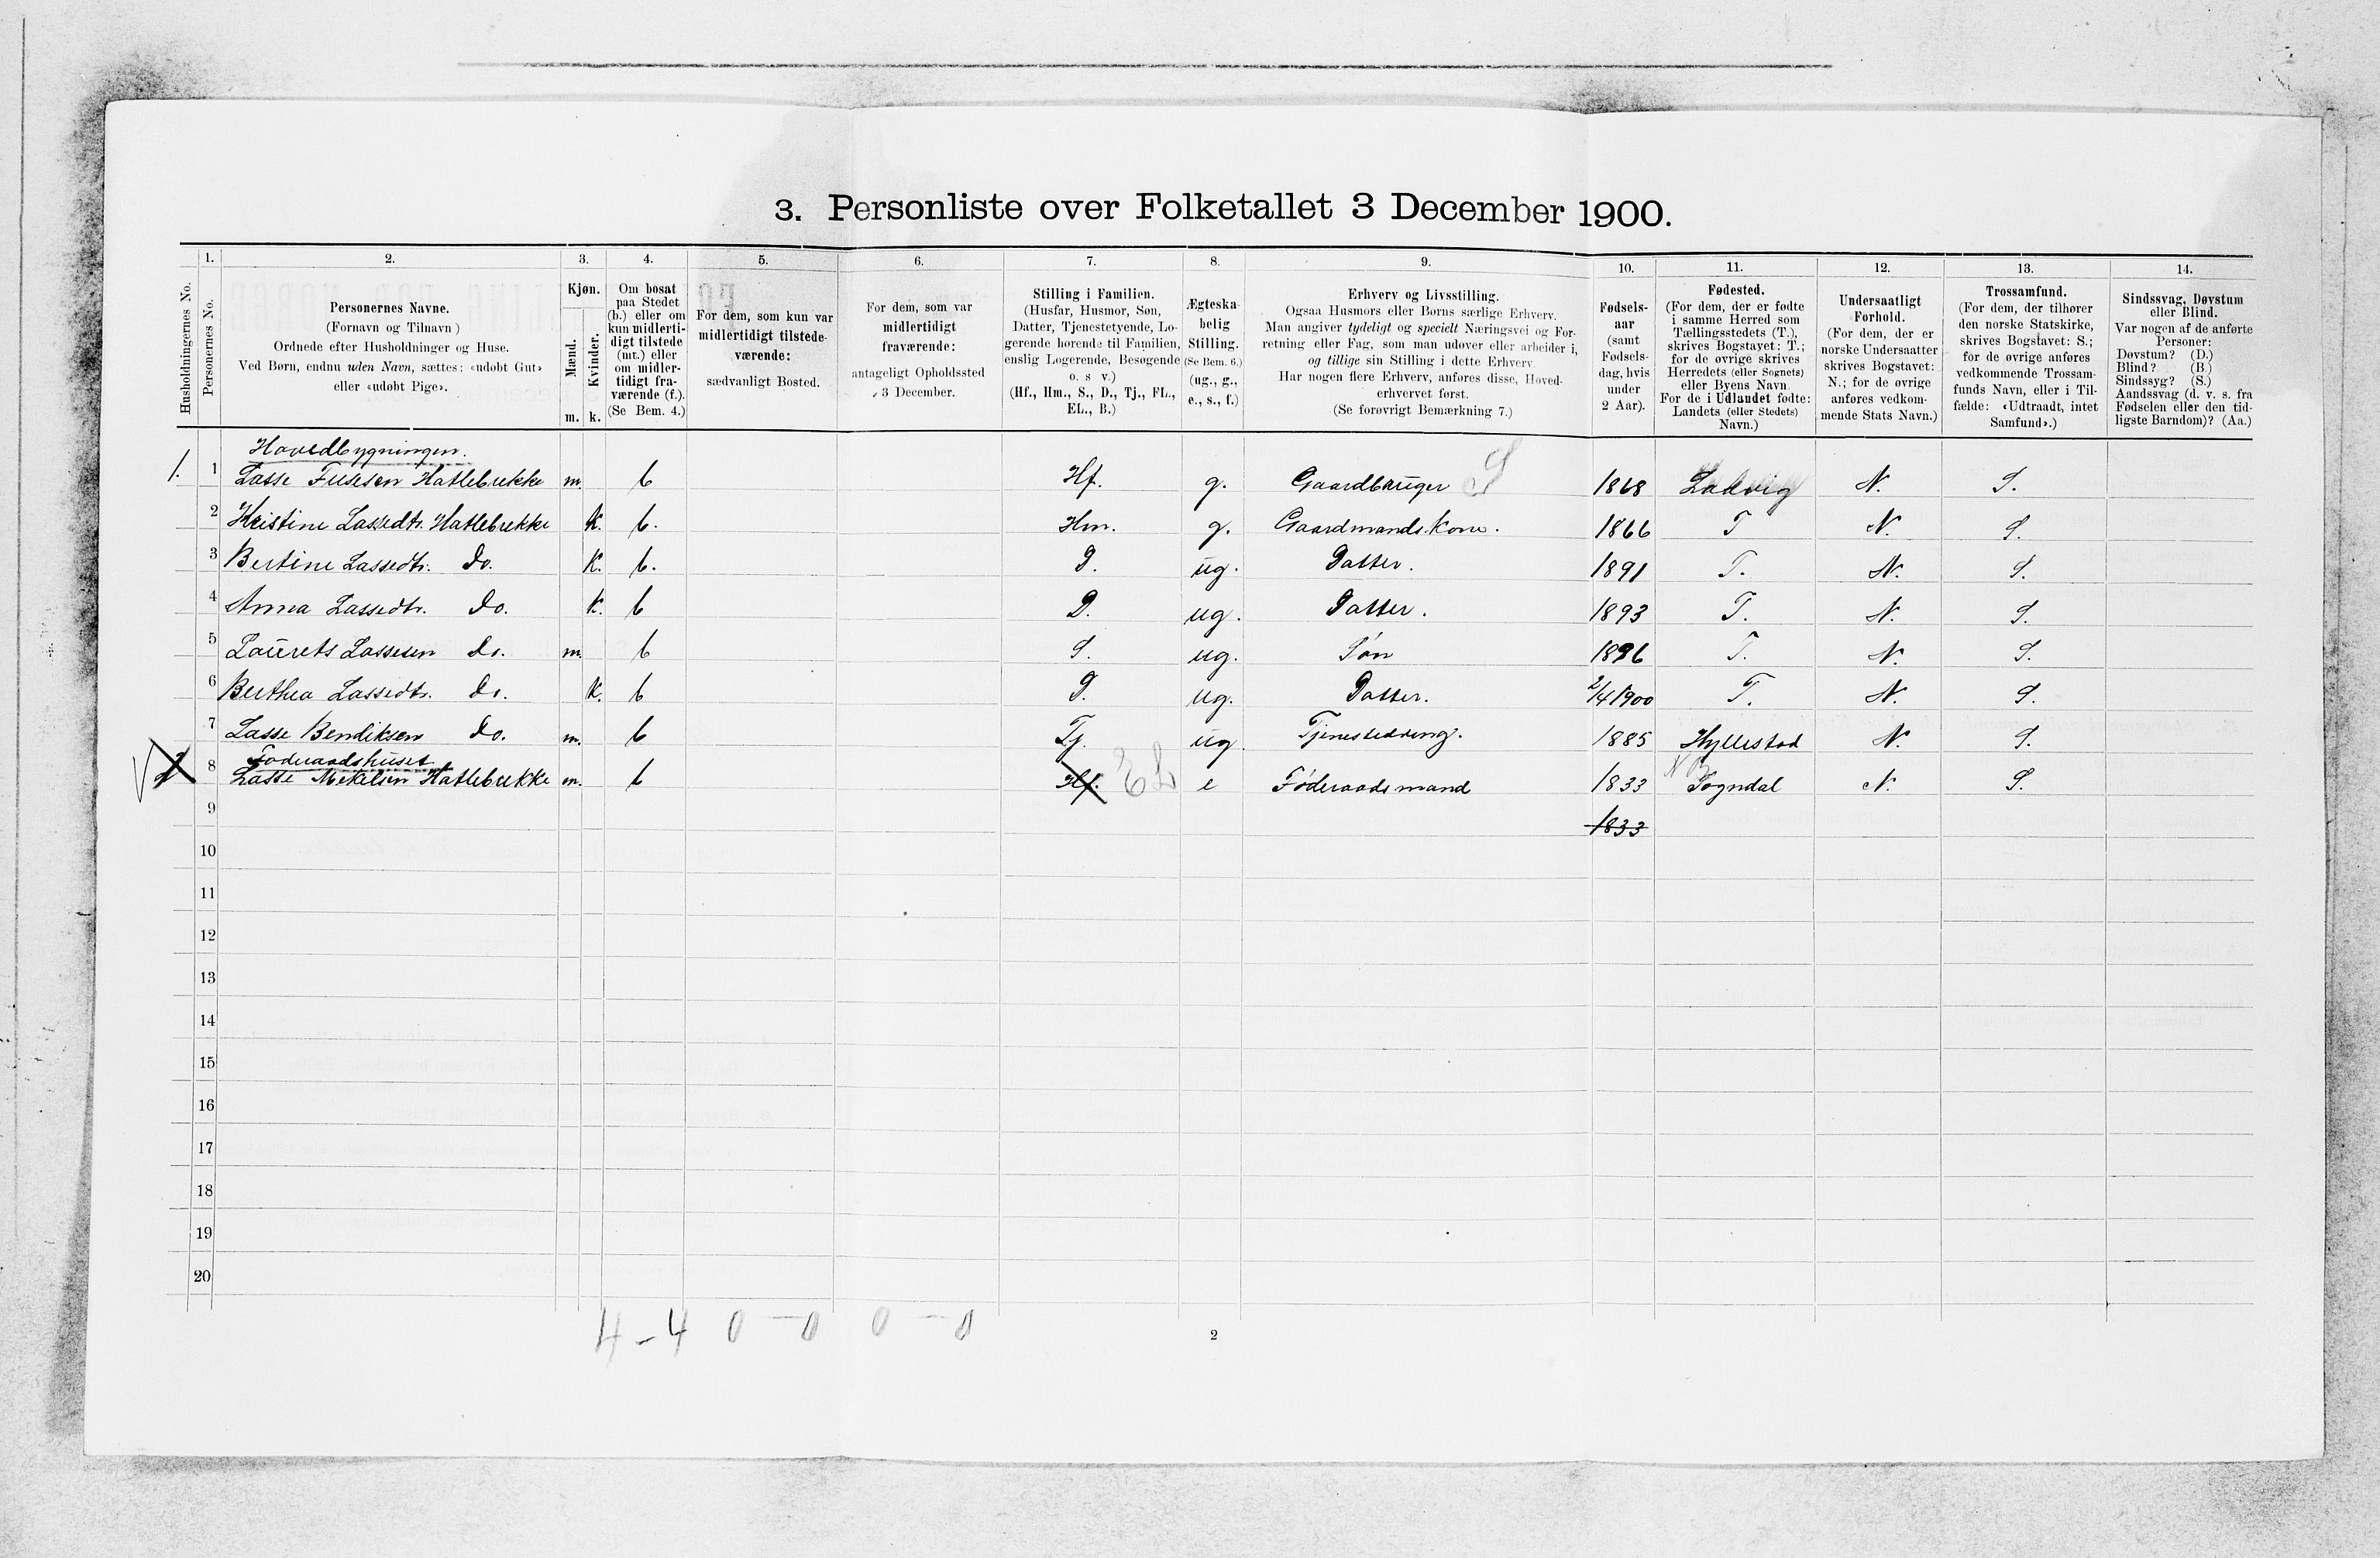 3. Personliste over Folketallet 3 December 1900.
1. 2. 3. 4. 5. 6. 7. 8. 9. 10. 11. 12. 13. 14.
Husholdningernes No.
Personernes No.
Personernes Navne.
(Fornavn og Tilnavn)
Ordnede efter Husholdninger og Huse.
Ved Børn, endnu uden Navn, sættes: «udøbt Gut»
eller «udøbt Pige».
Kjøn.
Mænd.
Kvinder.
m. k.
Om bosat
paa Stedet
(b.) eller om
kun midlerti-
digt tilstede
(mt.) eller
om midler-
tidigt fra-
værende (f.).
(Se Bem. 4.)
For dem, som kun var
midlertidigt tilstede-
værende:
sædvanligt Bosted.
For dem, som var
midlertidigt
fraværende:
antageligt Opholdssted
3 December.
Stilling i Familien.
(Husfar, Husmor, Søn,
Datter, Tjenestetyende, Lo-
gerende hørende til Familien,
enslig Logerende, Besøgende
o. s v.)
(Hf., Hm., S., D., Tj., FL.,
EL., B.)
Ægteska-
belig
Stilling.
(Se Bem. 6.)
(ug., g.,
e., s., f.)
Erhverv og Livsstilling.
Ogsaa Husmors eller Børns særlige Erhverv.
Man angiver tydeligt og specielt Næringsvei og For-
retning eller Fag, som man udøver eller arbeider i,
og tillige sin Stilling i dette Erhverv.
Har nogen flere Erhverv, anføres disse, Hoved-
erhvervet først.
(Se forøvrigt Bemærkning 7.)
Fødsels-
aar
(samt
Fødsels-
dag, hvis
under
2 Aar).
Fødested.
(For dem, der er fødte
i samme Herred som
Tællingsstedets (T.),
skrives Bogstavet: T.;
for de øvrige skrives
Herredets (eller Sognets)
eller Byens Navn.
For de i Udlandet fødte:
Landets (eller Stedets)
Navn.)
Undersaatligt
Forhold.
(For dem, der er
norske Undersaatter
skrives Bogstavet:
N.; for de øvrige
anføres vedkom-
mende Stats Navn.)
Trossamfund.
(For dem, der tilhører
den norske Statskirke,
skrives Bogstavet: S.;
for de øvrige anføres
vedkommende Trossam-
funds Navn, eller i Til-
fælde: «Udtraadt, intet
Samfund».)
Sindssvag, Døvstum
eller Blind.
Var nogen af de anførte
Personer:
Døvstum? (D.)
Blind? (B.)
Sindssyg? (S.)
Aandssvag (d. v. s. fra
Fødselen eller den tid-
ligste Barndom)? (Aa.)
Hovedbygningen.
1. 1 Lasse Hatlebrekke m. b Hf. g. Gaardbruger S 1868 Ladvig N. S.
2 Kristine Lassedtr. Hatlebrekke K. b. Hm. g. Gaardmandskone. 1866 T N. S.
3 Bertine Lassedtr. do. K. b. D. ug. Datter. 1891 T. N. S.
4 Anna Lassedtr. do. K. b D. ug. Datter. 1893 T. N. S.
5 Laurets Lassesen do. m. b S. ug. Søn 1896 T. N. S.
6 Berthea Lassedtr. do. K. b D. ug. Datter. 2/4 1900 T. N. S.
7 Lasse Bendiksen do. m. b Tj. ug. Tjenestedreng. 1885 Hyllestad N. S.
Føderaadshuset
2 8 Lasse Mikelsen Hatlebrekke m. b Hf. EL e Føderaadsmand 1833 Sogndal N. S.
9 1833
10
11
12
13
14
15
16
17
18
19
20
4 - 4 0 - 0 0 - 0
2